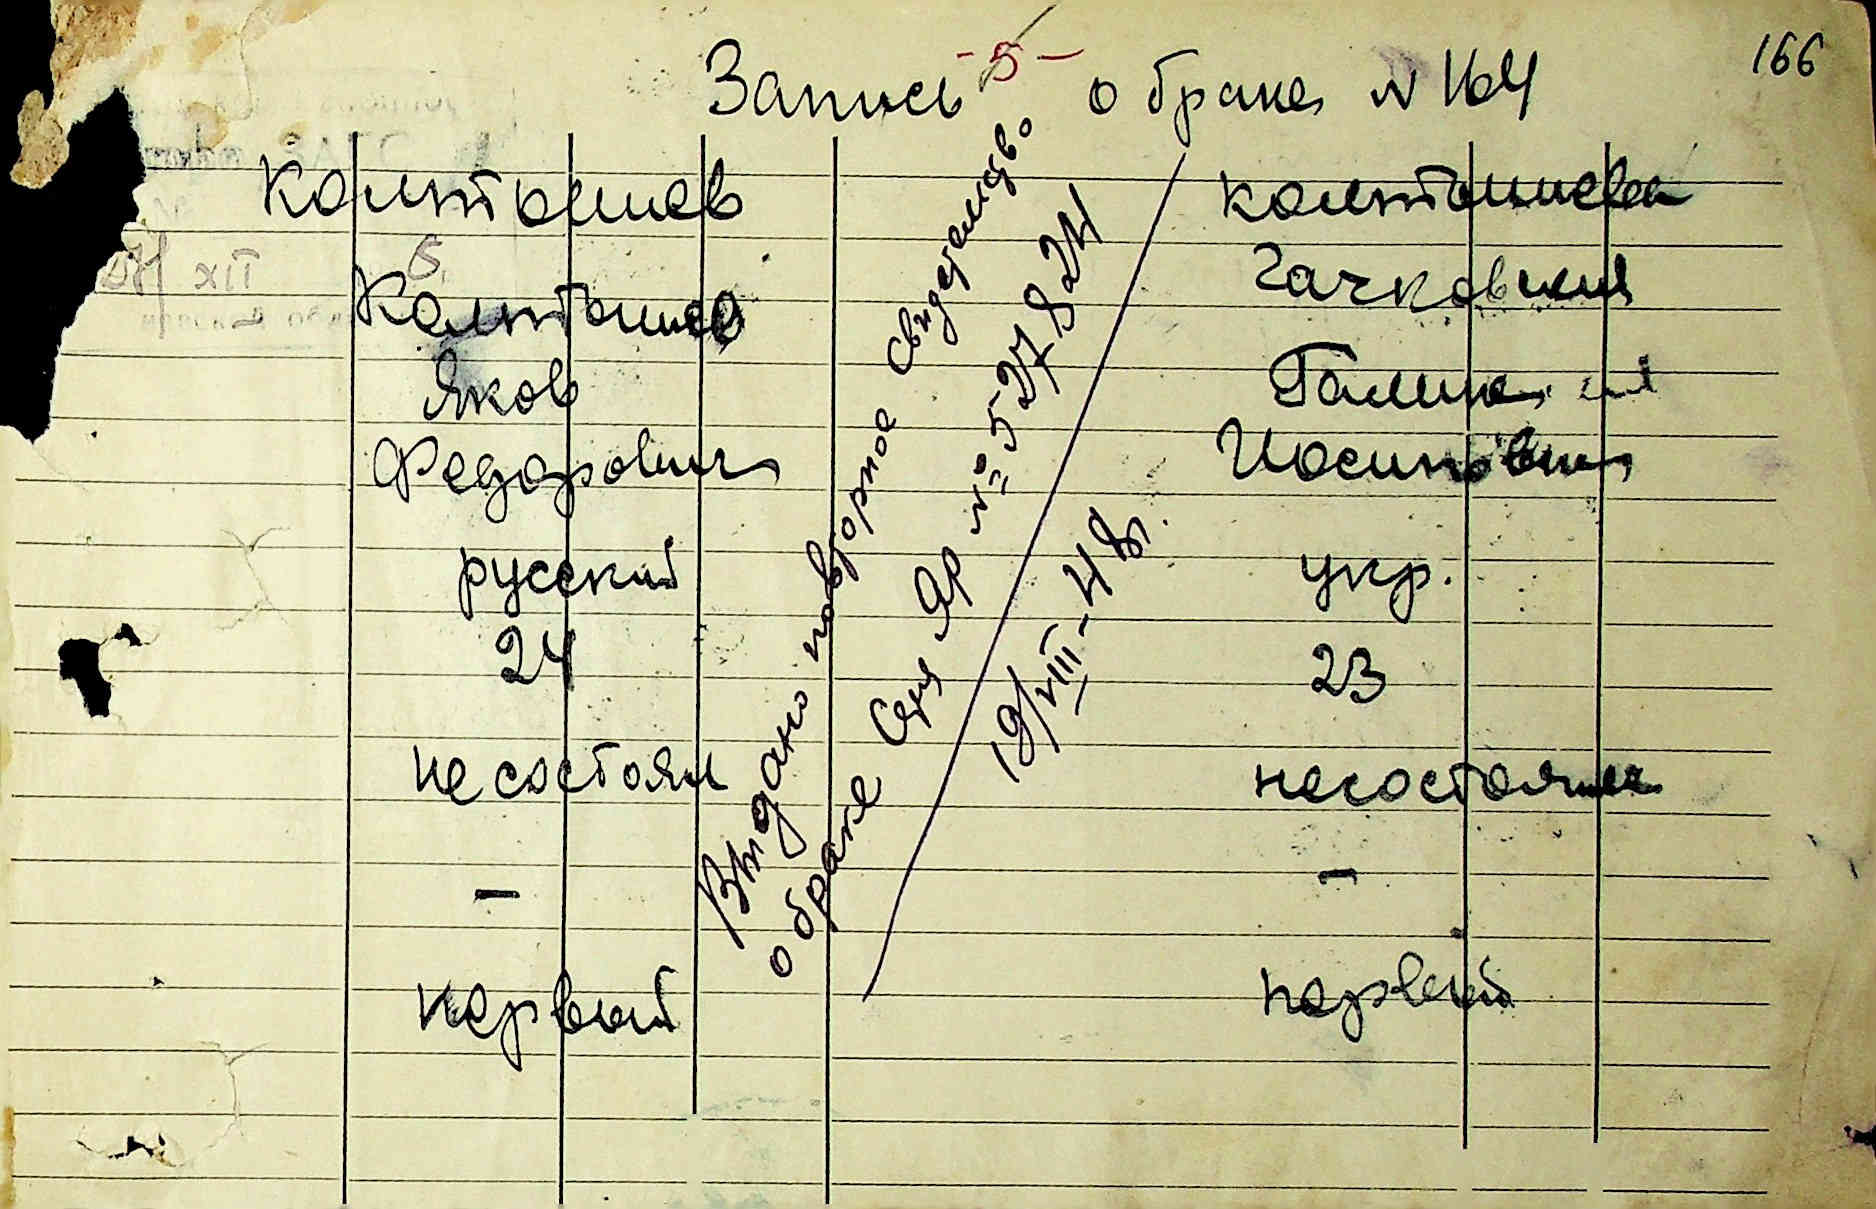 166
-5-
Запись о браке N 164
Колтышев
Колтышев
Яков
Федорович
русский
24
не состоял
-
первый
Выдано повторное свидетельство
о браке Серия ЯР № 527824
19/VIII-48г.
Колтышева
Гачковская
Галина
Иосиповна
укр.
23
не состояла
-
первый
5 XII